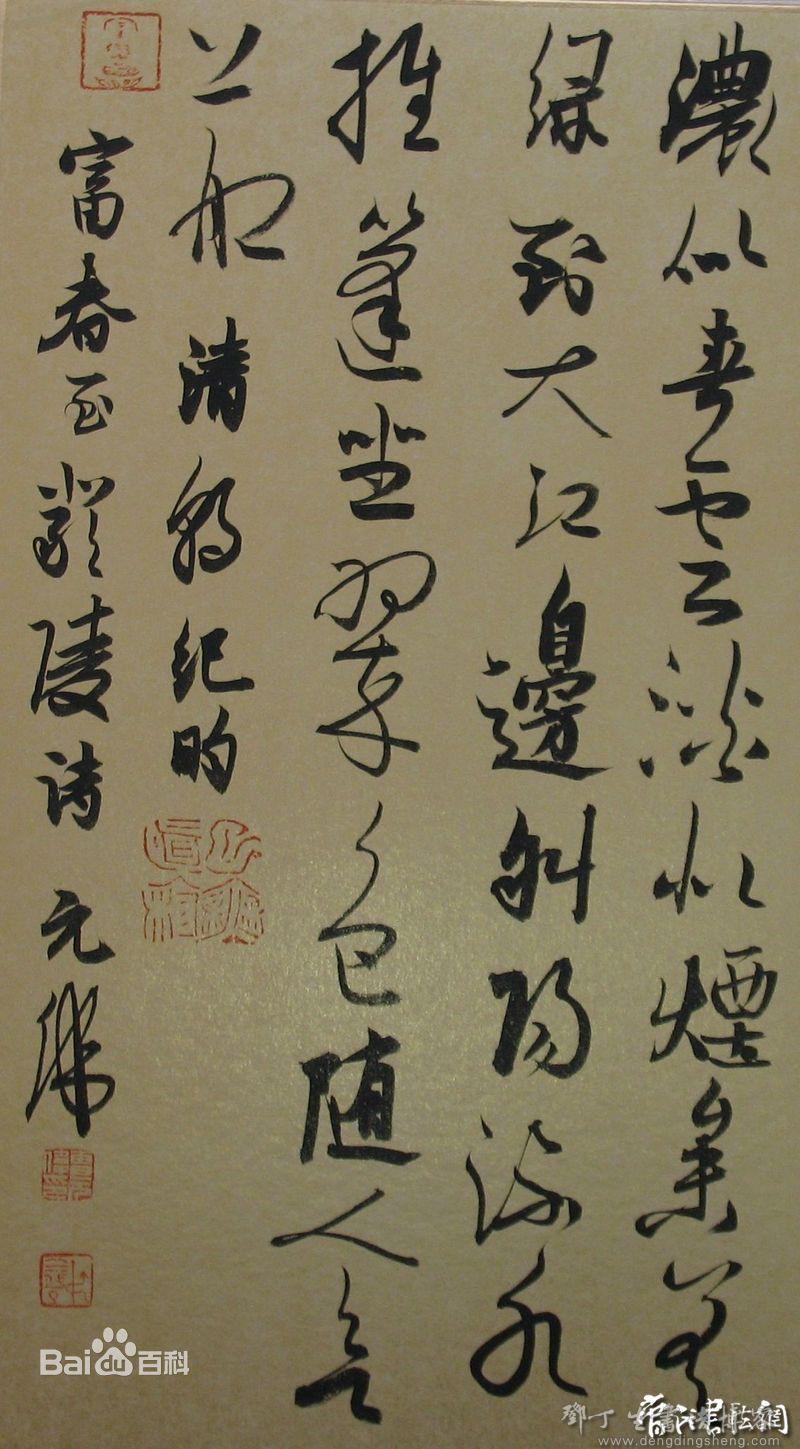 濃似春雲淡似煙參差
緑到大江邊斜陽流水
推篷坐翠色随人欲
上船 清朝纪昀
富春至嚴陵诗 元
Bai百科
鄧丁生書法
www.dengdingsheng.com